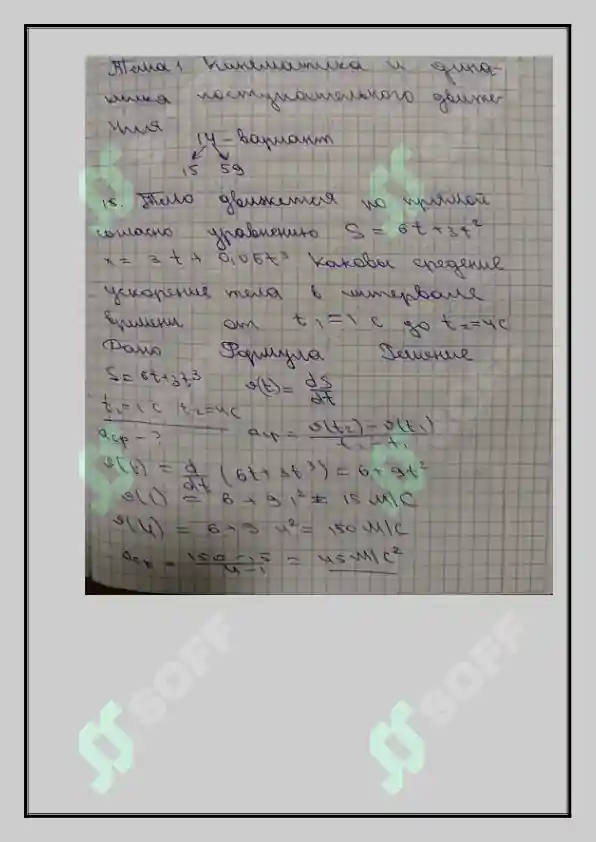 Тема 1 Кинематика и дина-
мика поступательного движе-
ния
14 - вариант
15 59
15. Тело движется по прямой
согласно уравнению S = 6t + 3t²
x = 3t + 0,06t³ Каковы средение
ускорение тела в интервале
времени от t₁ = 1 c до t₂ = 4c
Дано Формула Решение
S = 6t+3t³ υ(t) = dS/dt
t₁=1c t₂=4c
aср - ? aср = υ(t₂) - υ(t₁) / t₂ - t₁
υ(t) = d/dt (6t + 3t³) = 6 + 9t²
υ(1) = 6 + 9 1² = 15 м/с
υ(4) = 6 + 9 4² = 150 м/с
aср = 150 - 15 / 4 - 1 = 45 м/с²
SOFF
SOFF